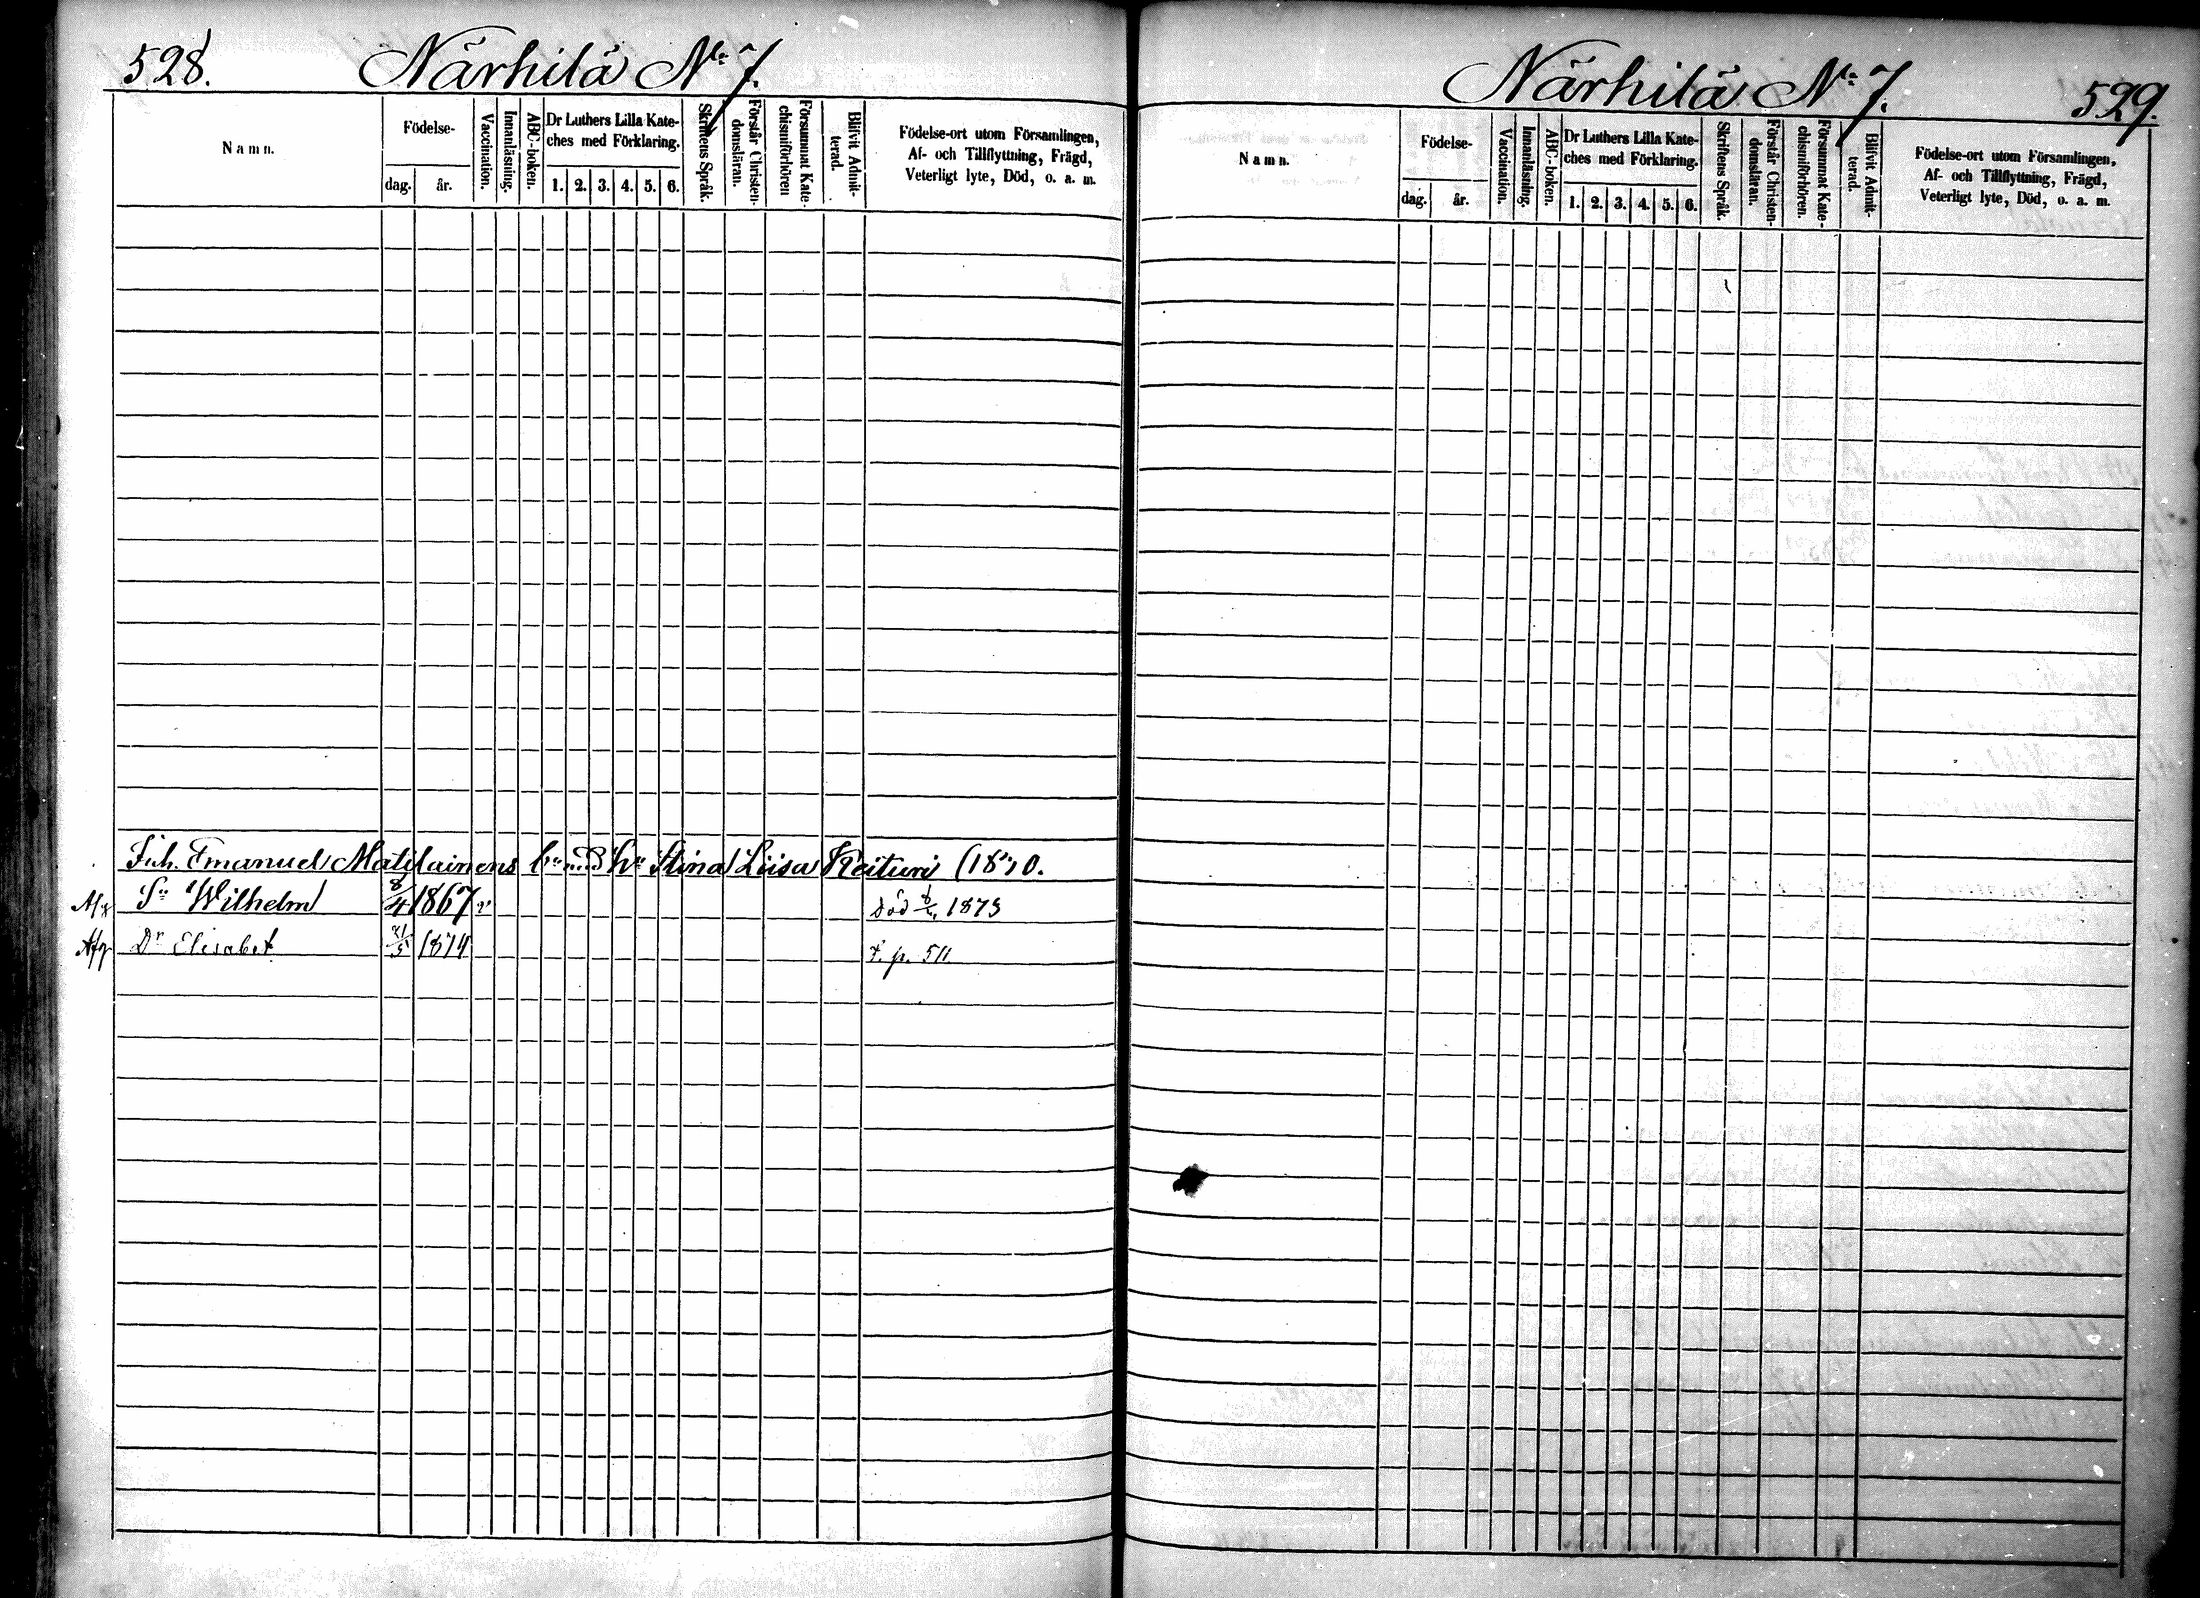 528.
Närhilä No 7.
Namn.
Födelse-
dag. år.
Vaccination.
Innanläsning.
ABC-boken.
Dr Luthers Lilla Kate-
ches med Förklaring.
1. 2. 3. 4. 5. 6.
Skriftens Språk.
Förstår Christen-
domsläran.
Försummat Kate-
chismiförhören
Blifvit Admit-
terad.
Födelse-ort utom Församlingen,
Af- och Tillflyttning, Frägd,
Veterligt lyte, Död, o. a. m.
Joh. Emanuel Matilainens bn med hu Stina Liisa Reituri
Sn Wilhelm 8/4 1867 v död 1873
Dr Elisabet 21/5 1874 F. p. 511
Närhilä No 7.
529.
Namn.
Födelse-
dag. år.
Vaccination.
Innanläsning.
ABC-boken.
Dr Luthers Lilla Kate-
ches med Förklaring.
1. 2. 3. 4. 5. 6.
Skriftens Språk.
Förstår Christen-
domsläran.
Försummat Kate-
chismiförhören.
Blifvit Admit-
terad.
Födelse-ort utom Församlingen,
Af- och Tillflyttning, Frägd,
Veterligt lyte, Död, o. a. m.